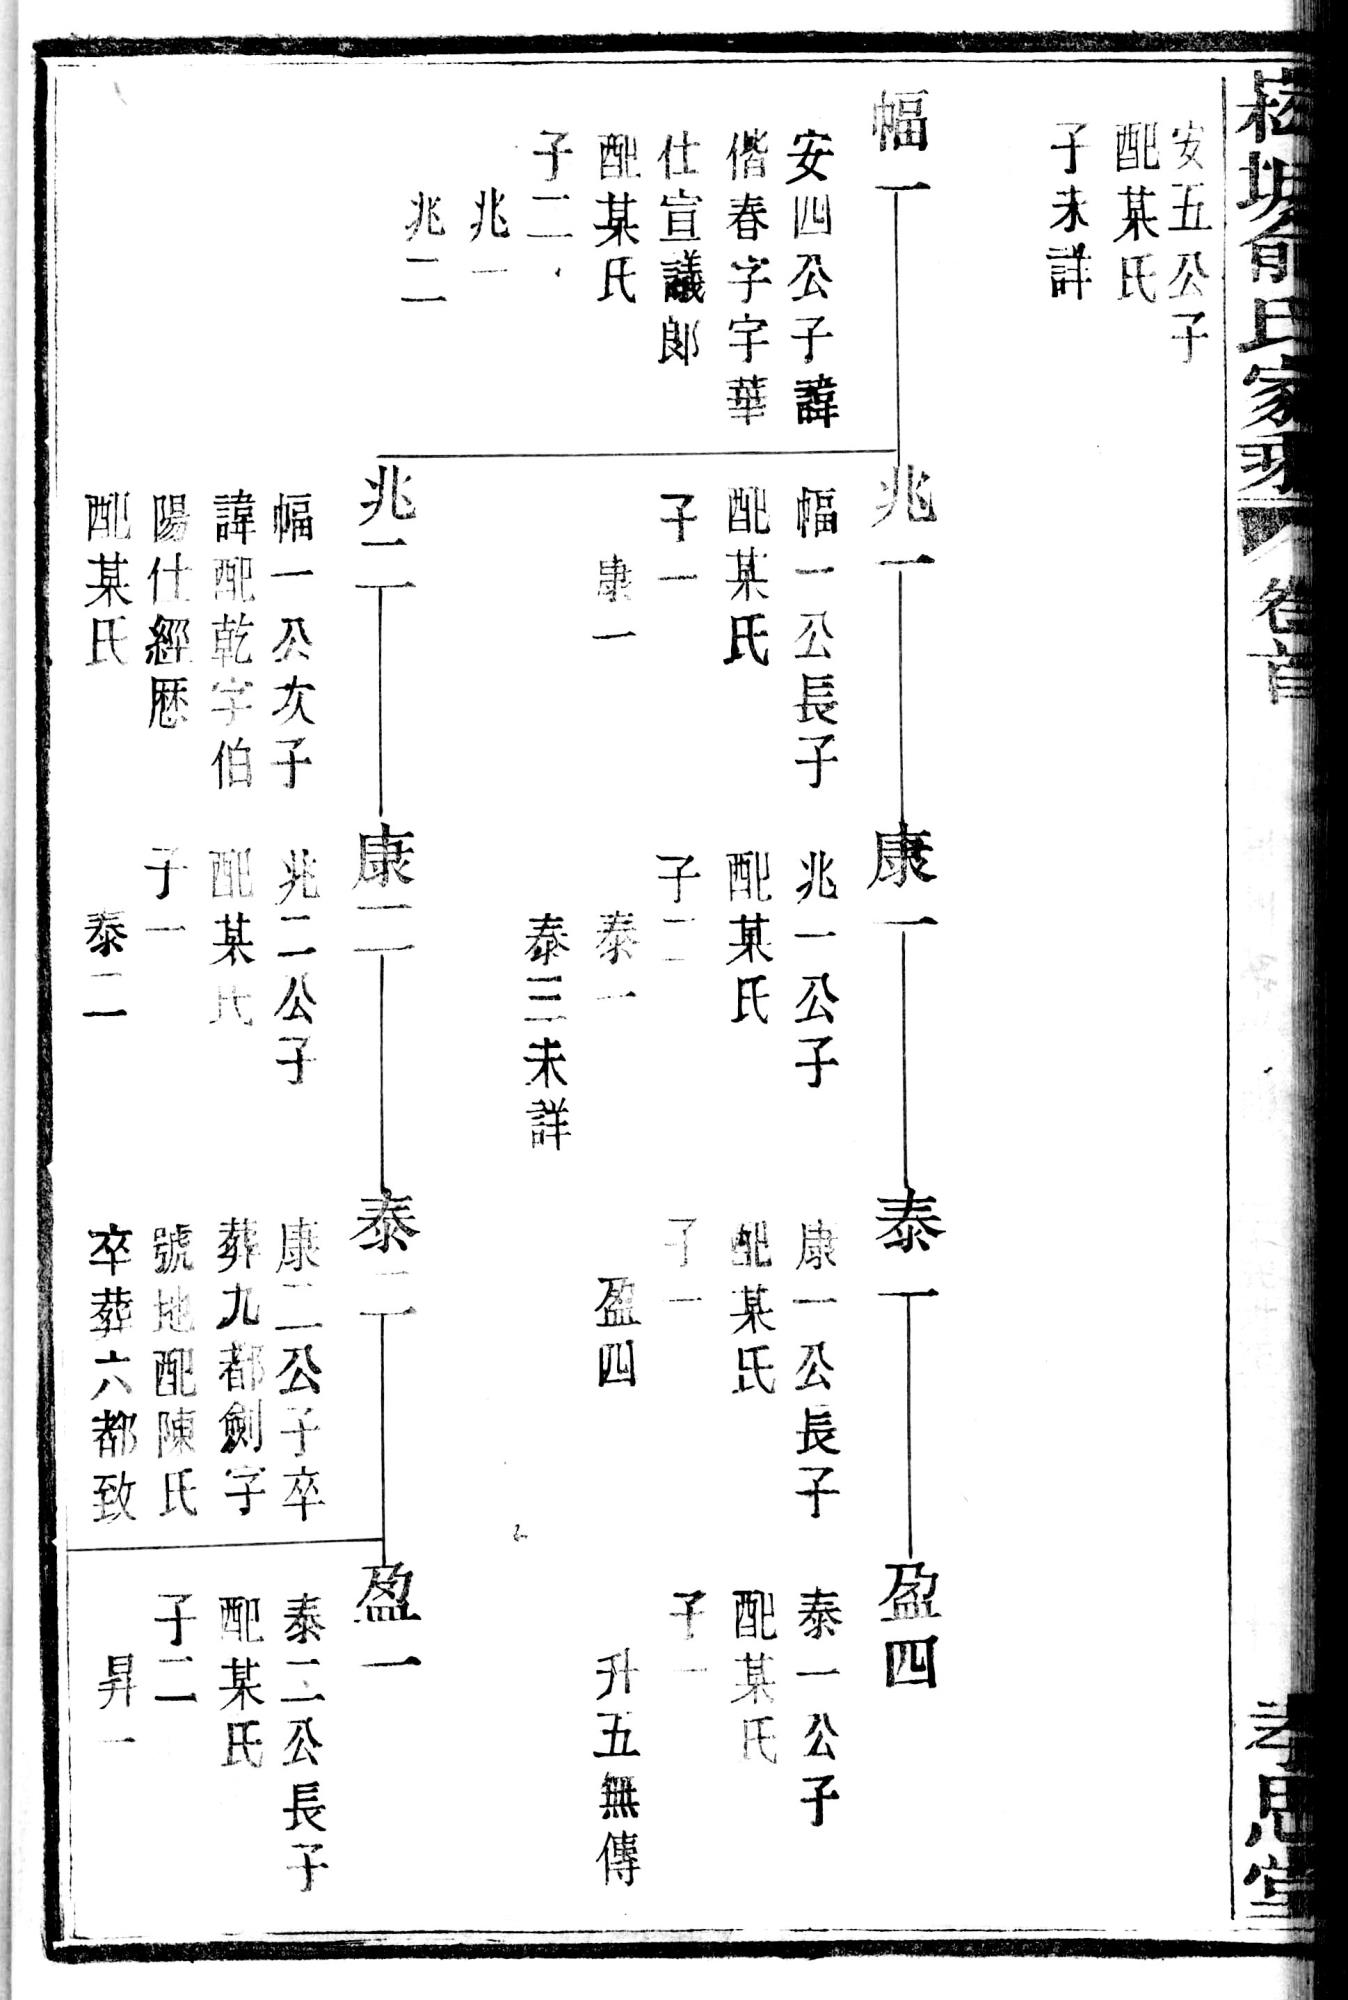 俞氏家乘
卷首
孝思堂
安五公子
配某氏
子未詳
幅一
安四公子諱
偕春字字華
仕宣議郎
配某氏
子二
兆一
兆二
兆一
幅一公長子
配某氏
子一
康一
兆二
幅一公次子
諱配乾字伯
陽仕經歷
配某氏
康一
兆一公子
配某氏
子二
泰一
泰三未詳
康二
兆二公子
配某氏
子一
泰二
泰一
康一公長子
配某氏
子一
盈四
泰二
康二公子卒
葬九都劍字
號地配陳氏
卒葬六都致
盈四
泰一公子
配某氏
子一
升五無傳
盈一
泰二公長子
配某氏
子二
昇一